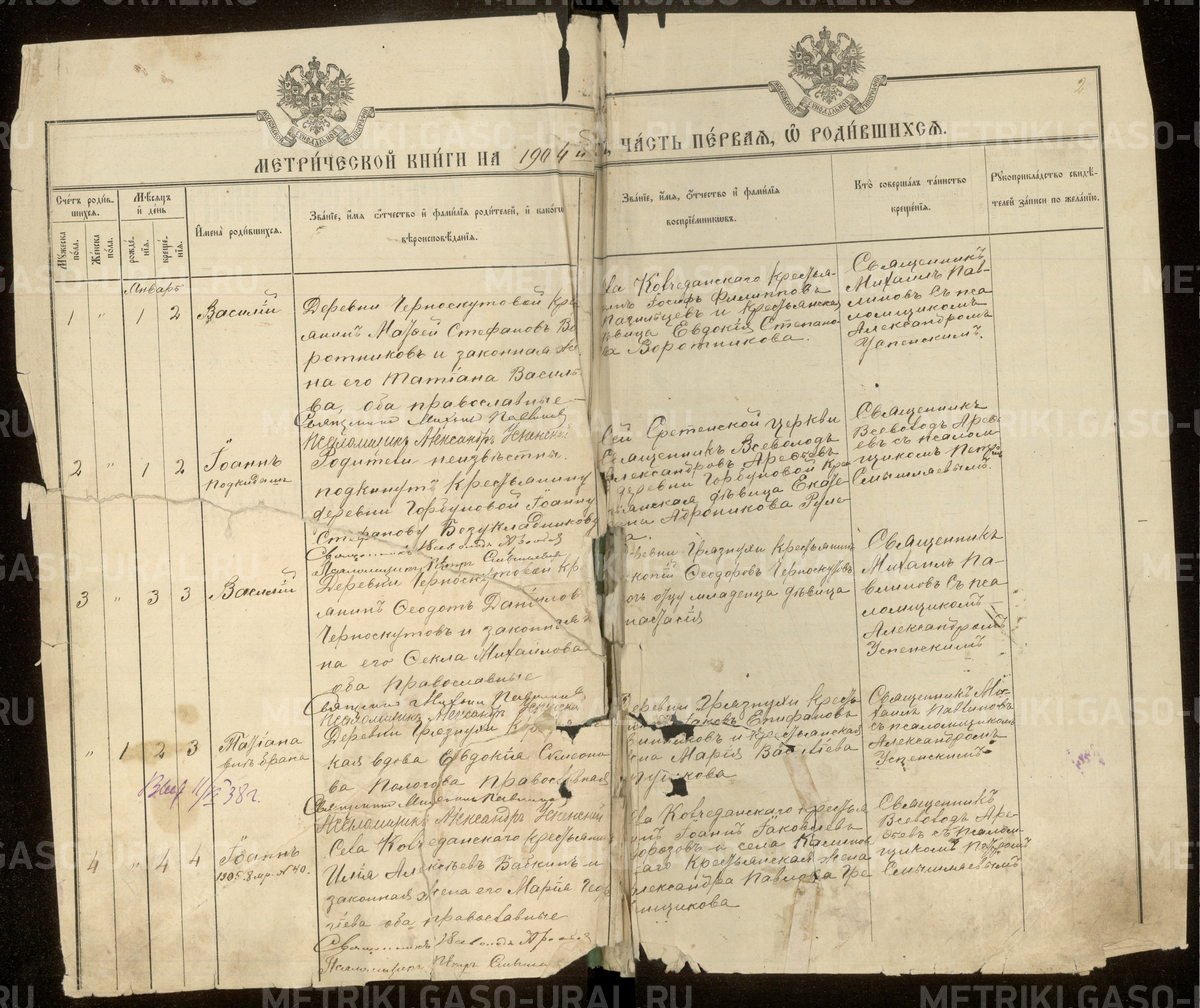 2
МЕТРИ́ЧЕСКОЙ КНИ́ГИ НА 1904 й
, ЧА́СТЬ ПЕ́РВАЯ, Ѿ РОДИ́ВШИХСЯ.
Счетъ роди́в-
шихся.
Му́жеска по́ла.
Же́нска по́ла.
Мѣсяцъ
и де́нь
рожде́-
нія.
креще́-
нія.
Имена роди́вшихся.
Зва́ніе, и́мя о́тчество и фами́лія роди́телей, и како́го
вѣроисповѣ́данія.
Зва́ніе, и́мя, о́тчество и фами́лія
воспріе́мниковъ.
Кто̀ соверша́лъ та́инство
креще́нія.
Рꙋкоприкла́дство свидѣ́-
телей за́писи по жела́нію.
Январь
1 " 1 2
Василій
Деревни Черноскутовой Кре
янинъ Матѳей Стефановъ Во
ротниковъ и законная же
на его Татіана Василь
ва, оба православные
Священникъ Михаилъ Павлиновъ
Псаломщикъ Александръ Успенскій
ла Ковчеданскаго Кресть
инъ Іосифъ Филипповъ
и крестьянска
вица Евдокія Степано
Воротникова.
Священникъ
Михаилъ Пав-
линовъ съ пса
ломщикомъ
Александромъ
Успенскимъ.
2 " 1 2
Іоаннъ
Подкидышъ
Родители неизвѣстны.
подкинутъ крестьянину
деревни Горбуновой Іоанну
Стефанову Безукладникову
Священникъ Всеволодъ Арефьевъ
Псаломщикъ Петръ Смышляевъ
Сей Срѣтенской церкви
Священникъ Всеволодъ
Александровъ Арефьевъ
деревни Горбуновой Кре
янская дѣвица Екате
Андроникова Руле
Священникъ
Всеволодъ Арефь
евъ съ псалом
щикомъ Петромъ
Смышляевымъ.
3 " 3 3
Василій
Деревни Черноскутовой Кр
янинъ Ѳеодотъ Даниловъ
Черноскутовъ и законная
на его Ѳекла Михаилова
оба православные
Священникъ Михаилъ Павлиновъ
Псаломщикъ Александръ Успенскій
деревни Грязнухи крестьянинъ
копій Ѳеодоровъ Черноскутовъ
отцу младенца дѣвица
настасія
Священникъ
Михаилъ Па-
влиновъ съ пса
ломщикомъ
Александромъ
Успенскимъ
" 1 2 3
Татіана
внѣ брака
Деревни Грязнухи
кая вдова Евдокія Симеоно
ва Пологова православная
Священникъ Михаилъ Павлиновъ
Псаломщикъ Александръ Успенскій
деревни Грязнухи кресть
Іаковъ Епифановъ
и крестьянская
Марія Васильева
Священникъ Ми
хаилъ Павлиновъ
съ псаломщикомъ
Александромъ
Успенскимъ
38 г.
4 " 4 4
Іоаннъ
Села Ковчеданскаго крестьянинъ
Илія Алексѣевъ Бабкинъ и
законная жена его Марія Геор
гіева оба православные
Священникъ Всеволодъ Арефьевъ
Псаломщикъ Петръ Смышляевъ
ла Ковчеданскаго крестья
инъ Іоаннъ Іаковлевъ
орозовъ и села Калинов
каго Крестьянская жена
лександра Павлова Гре
нщикова
Священникъ
Всеволодъ Аре-
фьевъ съ псалом
щикомъ Петромъ
Смышляевымъ
METRIKI.GASO-URAL.RU